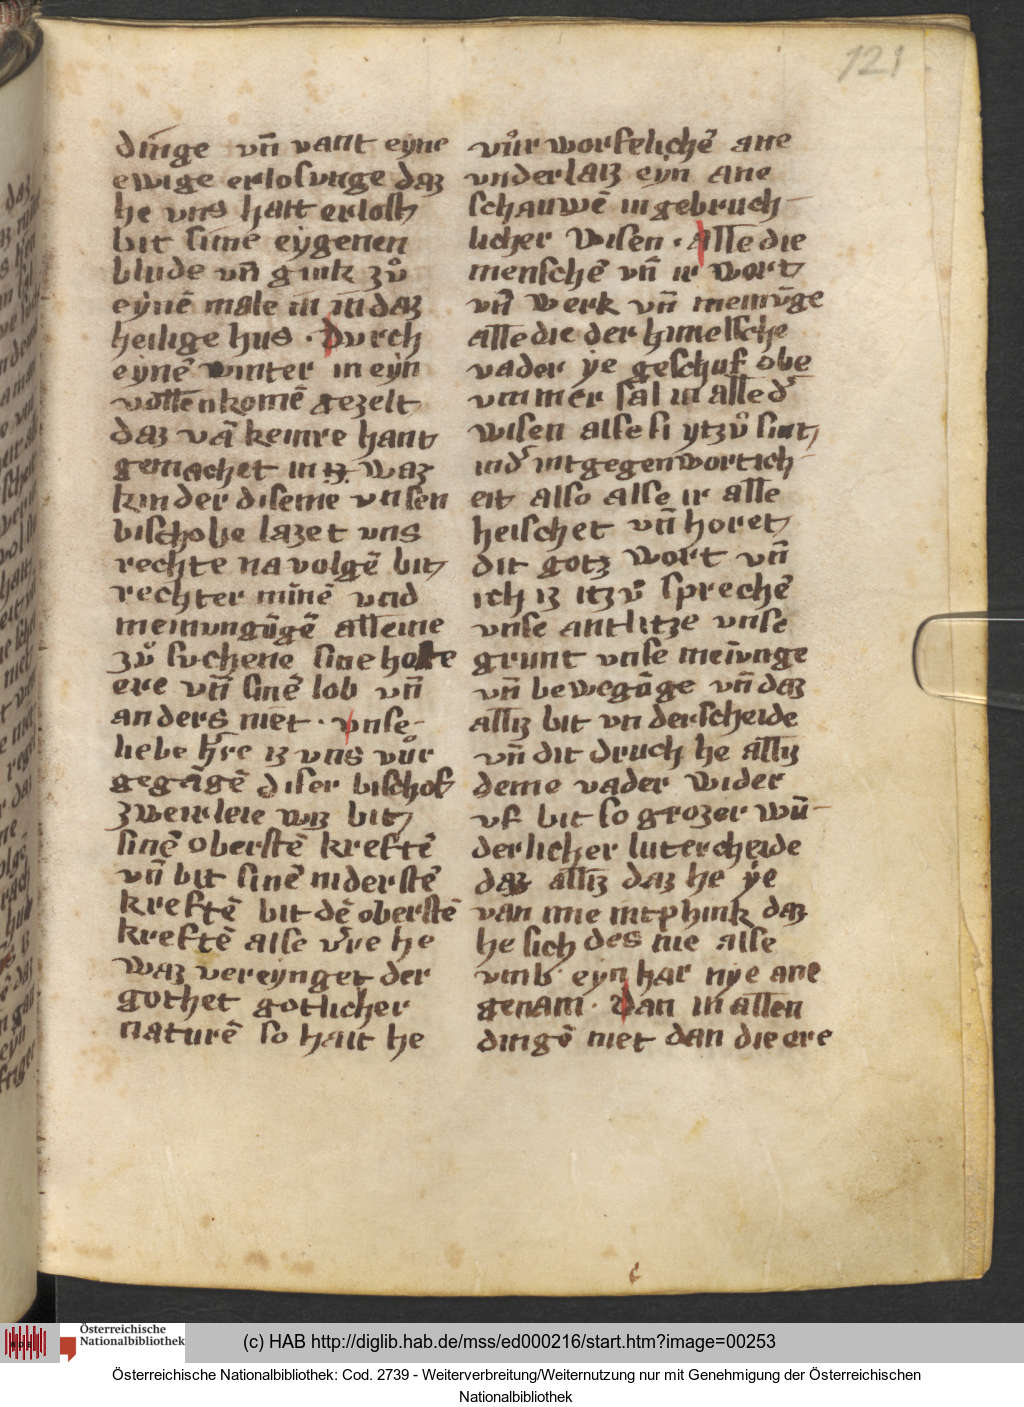 121
dinge vn̄ vant eyne
ewige erlosunge daz
he vns hait erlost
bit sime eẏgenen
blude vn̄ gink zů
eẏnē male in in daz
heilige hus · Durch
eẏnē winter in eẏn
vollenkomē gezelt
daz vā keinre hant
gemachet in iz waz
kinder diseme vnsen
bischoue lazet vns
rechte na volgē bit
rechter minē vnd
meinungūgē alleine
zů suchene sine
ere vn̄ sinē lob vn̄
anders niet · vnse-
liebe h're iz vns vůr
gegāgē diser bischof
zweirleie wiz bit
sinē oberstē kreftē
vn̄ bit sinē niderstē
kreftē bit dē oberstē
kreftē alse v're he
waz vereynget der
gothet gotlicher
naturē so hait he
vůr worfelichē ane
vnderlaiz eyn ane
schauwē in gebruch-
licher wisen · Alle die
menschē vn̄ ir wort
vn̄ werk vn̄ meinūge
alle die der himelsche
vader ẏe geschuf obe
vmmer sal in alle d'
wisen alse si ytzů sint
in d' intgegenwortich-
eit also alse ir alle
heischet vn̄ horet
dit gotz wort vn̄
ich iz itzů sprechē
vnse antlitze vnse
grunt vnse meinūnge
vn̄ bewegūge vn̄ daz
alliz bit vnderscheide
vn̄ dit druch he alliz
deme vader wider
vf bit so grozer wū-
derlicher lutercheide
daz alliz daz he ẏe
van ime intphink daz
he sich des nie alse
vmb eyn har nye ane
genam · Dan in allen
dingē niet dan die ere
(c) HAB http://diglib.hab.de/mss/ed000216/start.htm?image=00253
Österreichische
Nationalbibliothek
Österreichische Nationalbibliothek: Cod. 2739 - Weiterverbreitung/Weiternutzung nur mit Genehmigung der Österreichischen
Nationalbibliothek